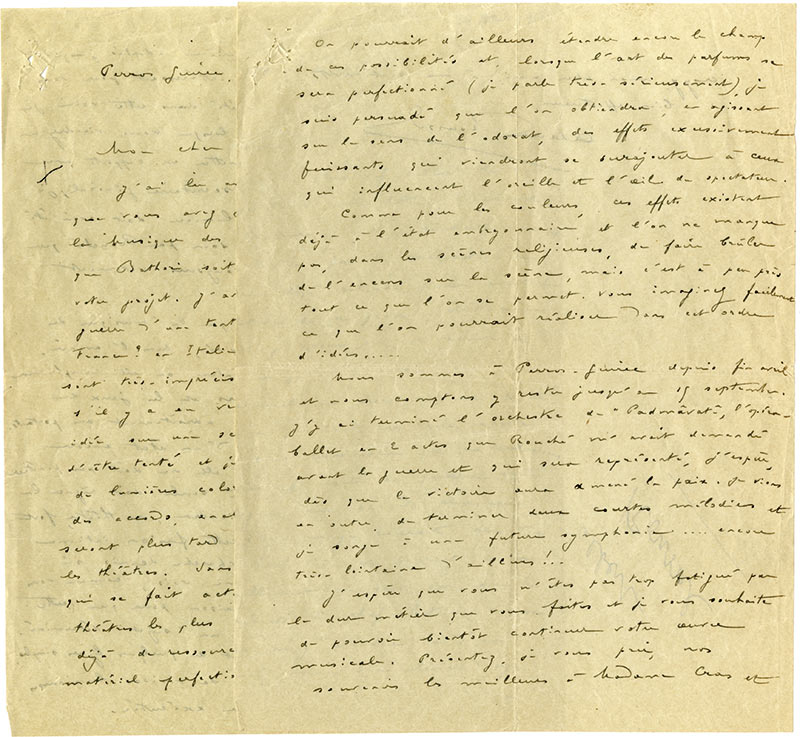 Perros Guirec,
Mon cher
J'ai lu
que vous avez
la musique des
que Bathori soit
votre projet. J'a
guerre d'une tent
France? en Italie
sont très imprécis
s'il y a eu
idée sur une
d'être tenté et j
de lumières colo
des accords,
seront plus tard
les théâtres. Dans
qui se fait act
théâtres les plus
déjà de ressourc
matériel perfectio
On pourrait d'ailleurs étendre encore le champ
de ces possibilités et, lorsque l'art des parfums se
sera perfectionné (je parle très sérieusement), je
suis persuadé que l'on obtiendra, en agissant
sur le sens de l'odorat, des effets excessivement
puissants qui viendront se surajouter à ceux
qui influencent l'oreille et l'œil du spectateur.
Comme pour les couleurs, ces effets existent
déjà à l'état embryonnaire, et l'on ne manque
pas, dans les scènes religieuses, de faire brûler
de l'encens sur la scène, mais c'est à peu près
tout ce que l'on se permet. Vous imaginez facilement
ce que l'on pourrait réaliser dans cet ordre
d'idées....
Nous sommes à Perros-Guirec depuis fin avril
et nous comptons y rester jusqu'au 15 septembre.
J'y ai terminé l'orchestre de "Padmâvatî, l'opéra-
ballet en 2 actes que Rouché m'avait demandé
avant la guerre et qui sera représenté, j'espère,
dès que la victoire aura amené la paix. Je viens
en outre, de terminer deux courtes mélodies et
je songe à une future symphonie .... encore
très lointaine d'ailleurs!..
J'espère que vous n'êtes pas trop fatigué par
le dur métier que vous faites et je vous souhaite
de pouvoir bientôt continuer votre œuvre
musicale. Présentez, je vous prie, nos
souvenirs les meilleurs à Madame Cras et